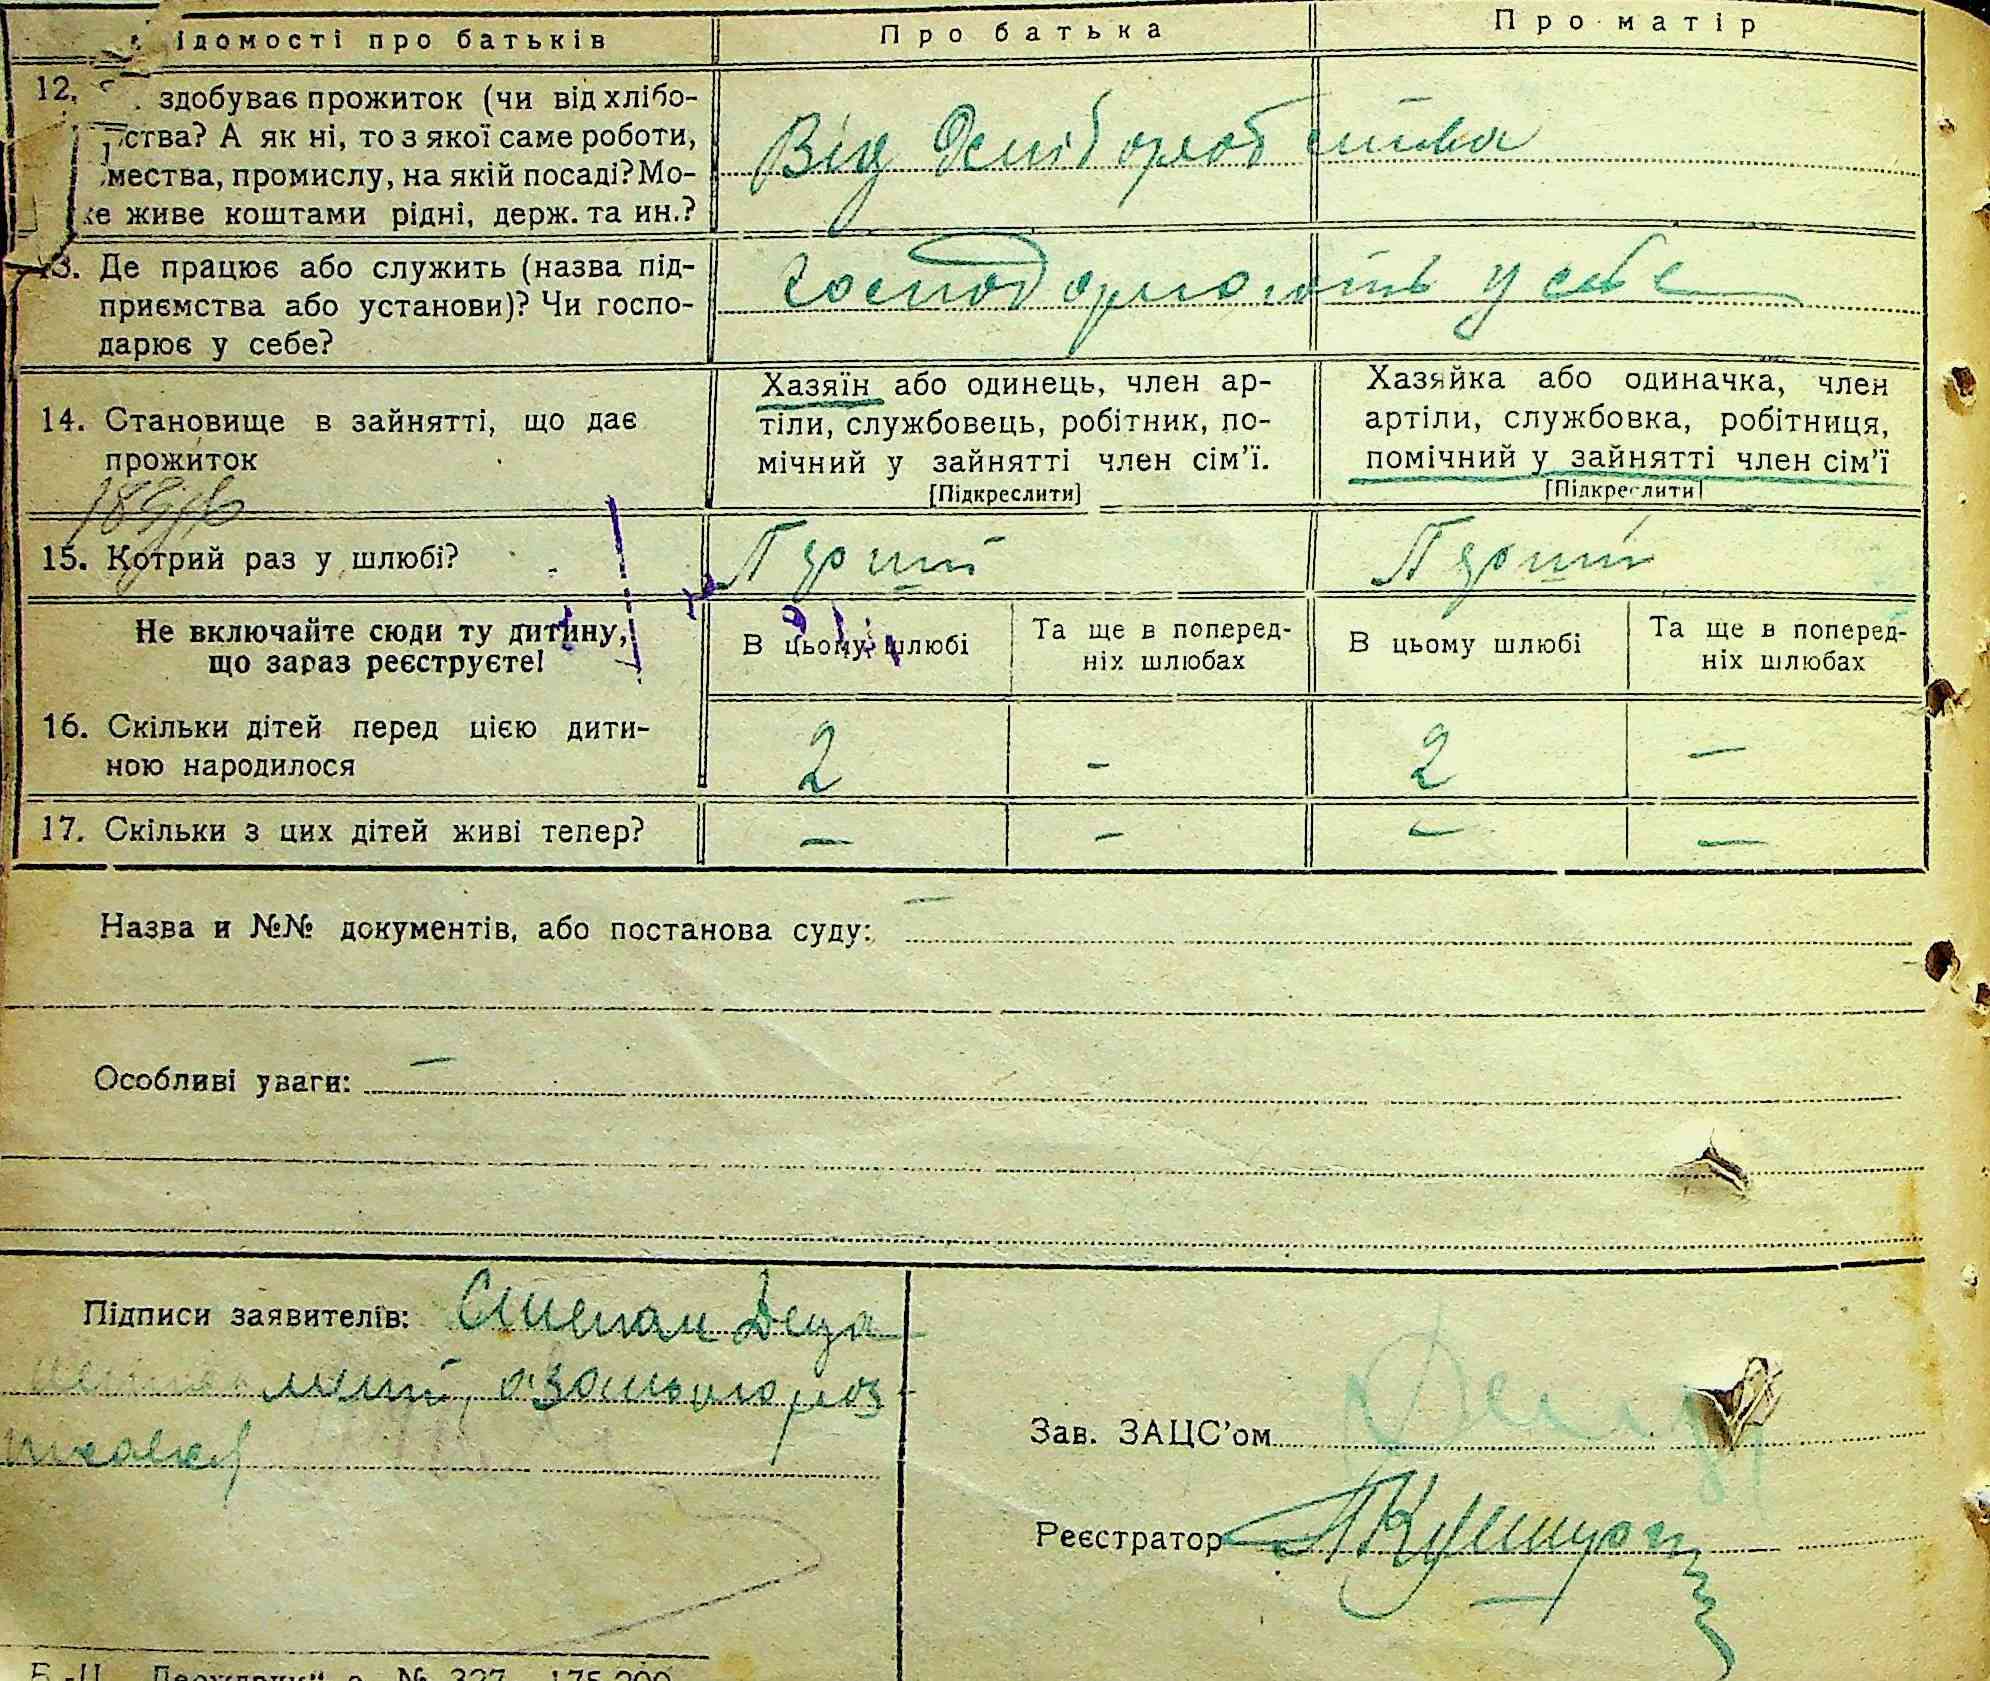 ідомості про батьків
Про батька
Про матір
12. здобуває прожиток (чи від хлібо-
ства? А як ні, то з якої саме роботи,
мества, промислу, на якій посаді? Мо-
же живе коштами рідні, держ. та ин.?
Від
13. Де працює або служить (назва під-
приємства або установи)? Чи госпо-
дарює у себе?
господарюють у себе
14. Становище в зайнятті, що дає
прожиток
Хазяїн або одинець, член ар-
тіли, службовець, робітник, по-
мічний у зайнятті член сім'ї.
[Підкреслити]
Хазяйка або одиначка, член
артіли, службовка, робітниця,
помічний у зайнятті член сім'ї
[Підкреслити]
15. Котрий раз у шлюбі?
Перший
Перший
Не включайте сюди ту дитину,
що зараз реєструєте!
В цьому шлюбі
Та ще в поперед-
ніх шлюбах
В цьому шлюбі
Та ще в поперед-
ніх шлюбах
16. Скільки дітей перед цією дити-
ною народилося
2
-
2
—
17. Скільки з цих дітей живі тепер?
—
-
—
—
Назва и №№ документів, або постанова суду: —
Особливі уваги: —
Підписи заявителів: Степан
Зав. ЗАЦС'ом
Реєстратор
№ 327 175.200